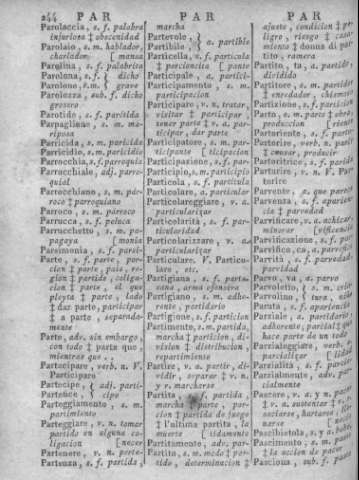 244 PAR PAR PAR
Parolaccia, s. f. palabra
injuriosa ‡ obscenidad
Parolaio, s. m. hablador,
charlador
Parolina, s. f. palabrita
Parolona, s. f. dicho
Parolone, s. m. grave
Parolozza, sub. f. dicho
grosero
Parotido, s. f. parótida
Parpaglione, s. m. ma-
riposa
Parricida, s. m. parricida
Parricidio, s. m. parricidio
Parrocchia, s. f. parroquia
Parrocchiale, adj. parro-
quial
Parrocchiano, s. m. pár-
roco ‡ parroquiano
Parroco, s. m. párroco
Parrucca, s. f. peluca
Parrucchetto, s. m. pa-
pagayo [monia
Parsimonia, s. f. parsi-
Parte, s. f. parte, por-
cion ‡ parte, pais, re-
gion ‡ partido, obliga-
cion ‡ parte, el que
pleyta ‡ parte, lado
‡ dar parte, participar
‡ a parte, separada-
mente
Parte, adv. sin embargo,
con todo ‡ parte que,
mientras que
Partecipare, verb. n. V.
Participare
Partecipe, adj. parti-
Partefice cipe
Parteggiamento, s. m.
partimiento
Parteggiare, v. n. tomar
partido en alguna co-
ligacion [necer
Partenere, v. n. perte-
Partenza, s. f. partida,
marcha
Partevole, a. partible
Partibile
Particella, s. f. partícula
‡ porcioncita [ponte
Participale, a. partici-
Participamento, s. m.
participacion
Participare, v. n. tratar,
visitar ‡ participar,
tener parte ‡ v. a. par-
ticipar, dar parte
Participatore, s. m. par-
ticipante [ticipacion
Participazione, s. f. par-
Participio, s. m. participio
Particola, s. f. partícula
Particolare, a. particular
Particolareggiare, v. a.
particularizar
Particolarità, s. f. par-
ticularidad
Particolarizzare, v. a.
particularizar
Particolare. V. Particu-
lare, etc.
Partigiana, s. f. parte-
sana, arma ofensiva
Partigiano, s. m. adhe-
rente, partidario
Partigione, s. f. particion
Partimento, s. m. partida,
marcha ‡ particion, di-
vision ‡ distribucion,
repartimiento
Partire, v. a. partir, di-
vidir, separar ‡ v. n.
y r. marcharse
Partita, s. f. partida,
marcha ‡ parte, par-
cion ‡ partida de juego
‡ l'ultima partita, la
muerte [tidamente
Partitamente, adv. par-
Partito, s. m. modo ‡ par-
tido, determinacion ‡
ajuste, condicion ‡ pe-
ligro, riesgo ‡ casa-
miento ‡ donna di par-
tito, ramera
Partito, ta, a. partido,
dividido
Partitore, s. m. partidor
‡ enredador, chismoso
Partizione, s. f. particion
Parto, s. m. parto ‡ obra,
produccion
Partoriente, s. f. parturi-
Partorire, verb. n. parir
‡ causar, producir
Partoritrice, s. f. parida
Parturire, v. n. V. Par-
torire
Parvente, a. que parece
Parvenza, s. f. aparien-
cia ‡ parvedad
Parvificare, v. a. achicar,
minorar
Parvificazione, s. f. par-
Parvifico, ca, a. parvifico
Parvità, s. f. parvedad,
parvidad
Parvo, va, a. parvo
Parvoletto, s. m. cria-
Parvolino, tura, niño
Parata, s. f. batallon
Parziale, a. partidario,
adherente; parcial ‡ que
hace parte de un todo
Parzialeggiare, verb. n.
parcializar
Parzialità, s. f. parciali-
Parzialmente, adv. par-
cialmente
Pascere, v. a. y n. pacer
‡ v. a. sustentar ‡ v. r.
saciarse, hartarse
narse
Pascibietola, s. y a. bobo,
Pascimento, s. m. pasto,
‡ la accion de pacer
Pasciona, sub. f. pasto